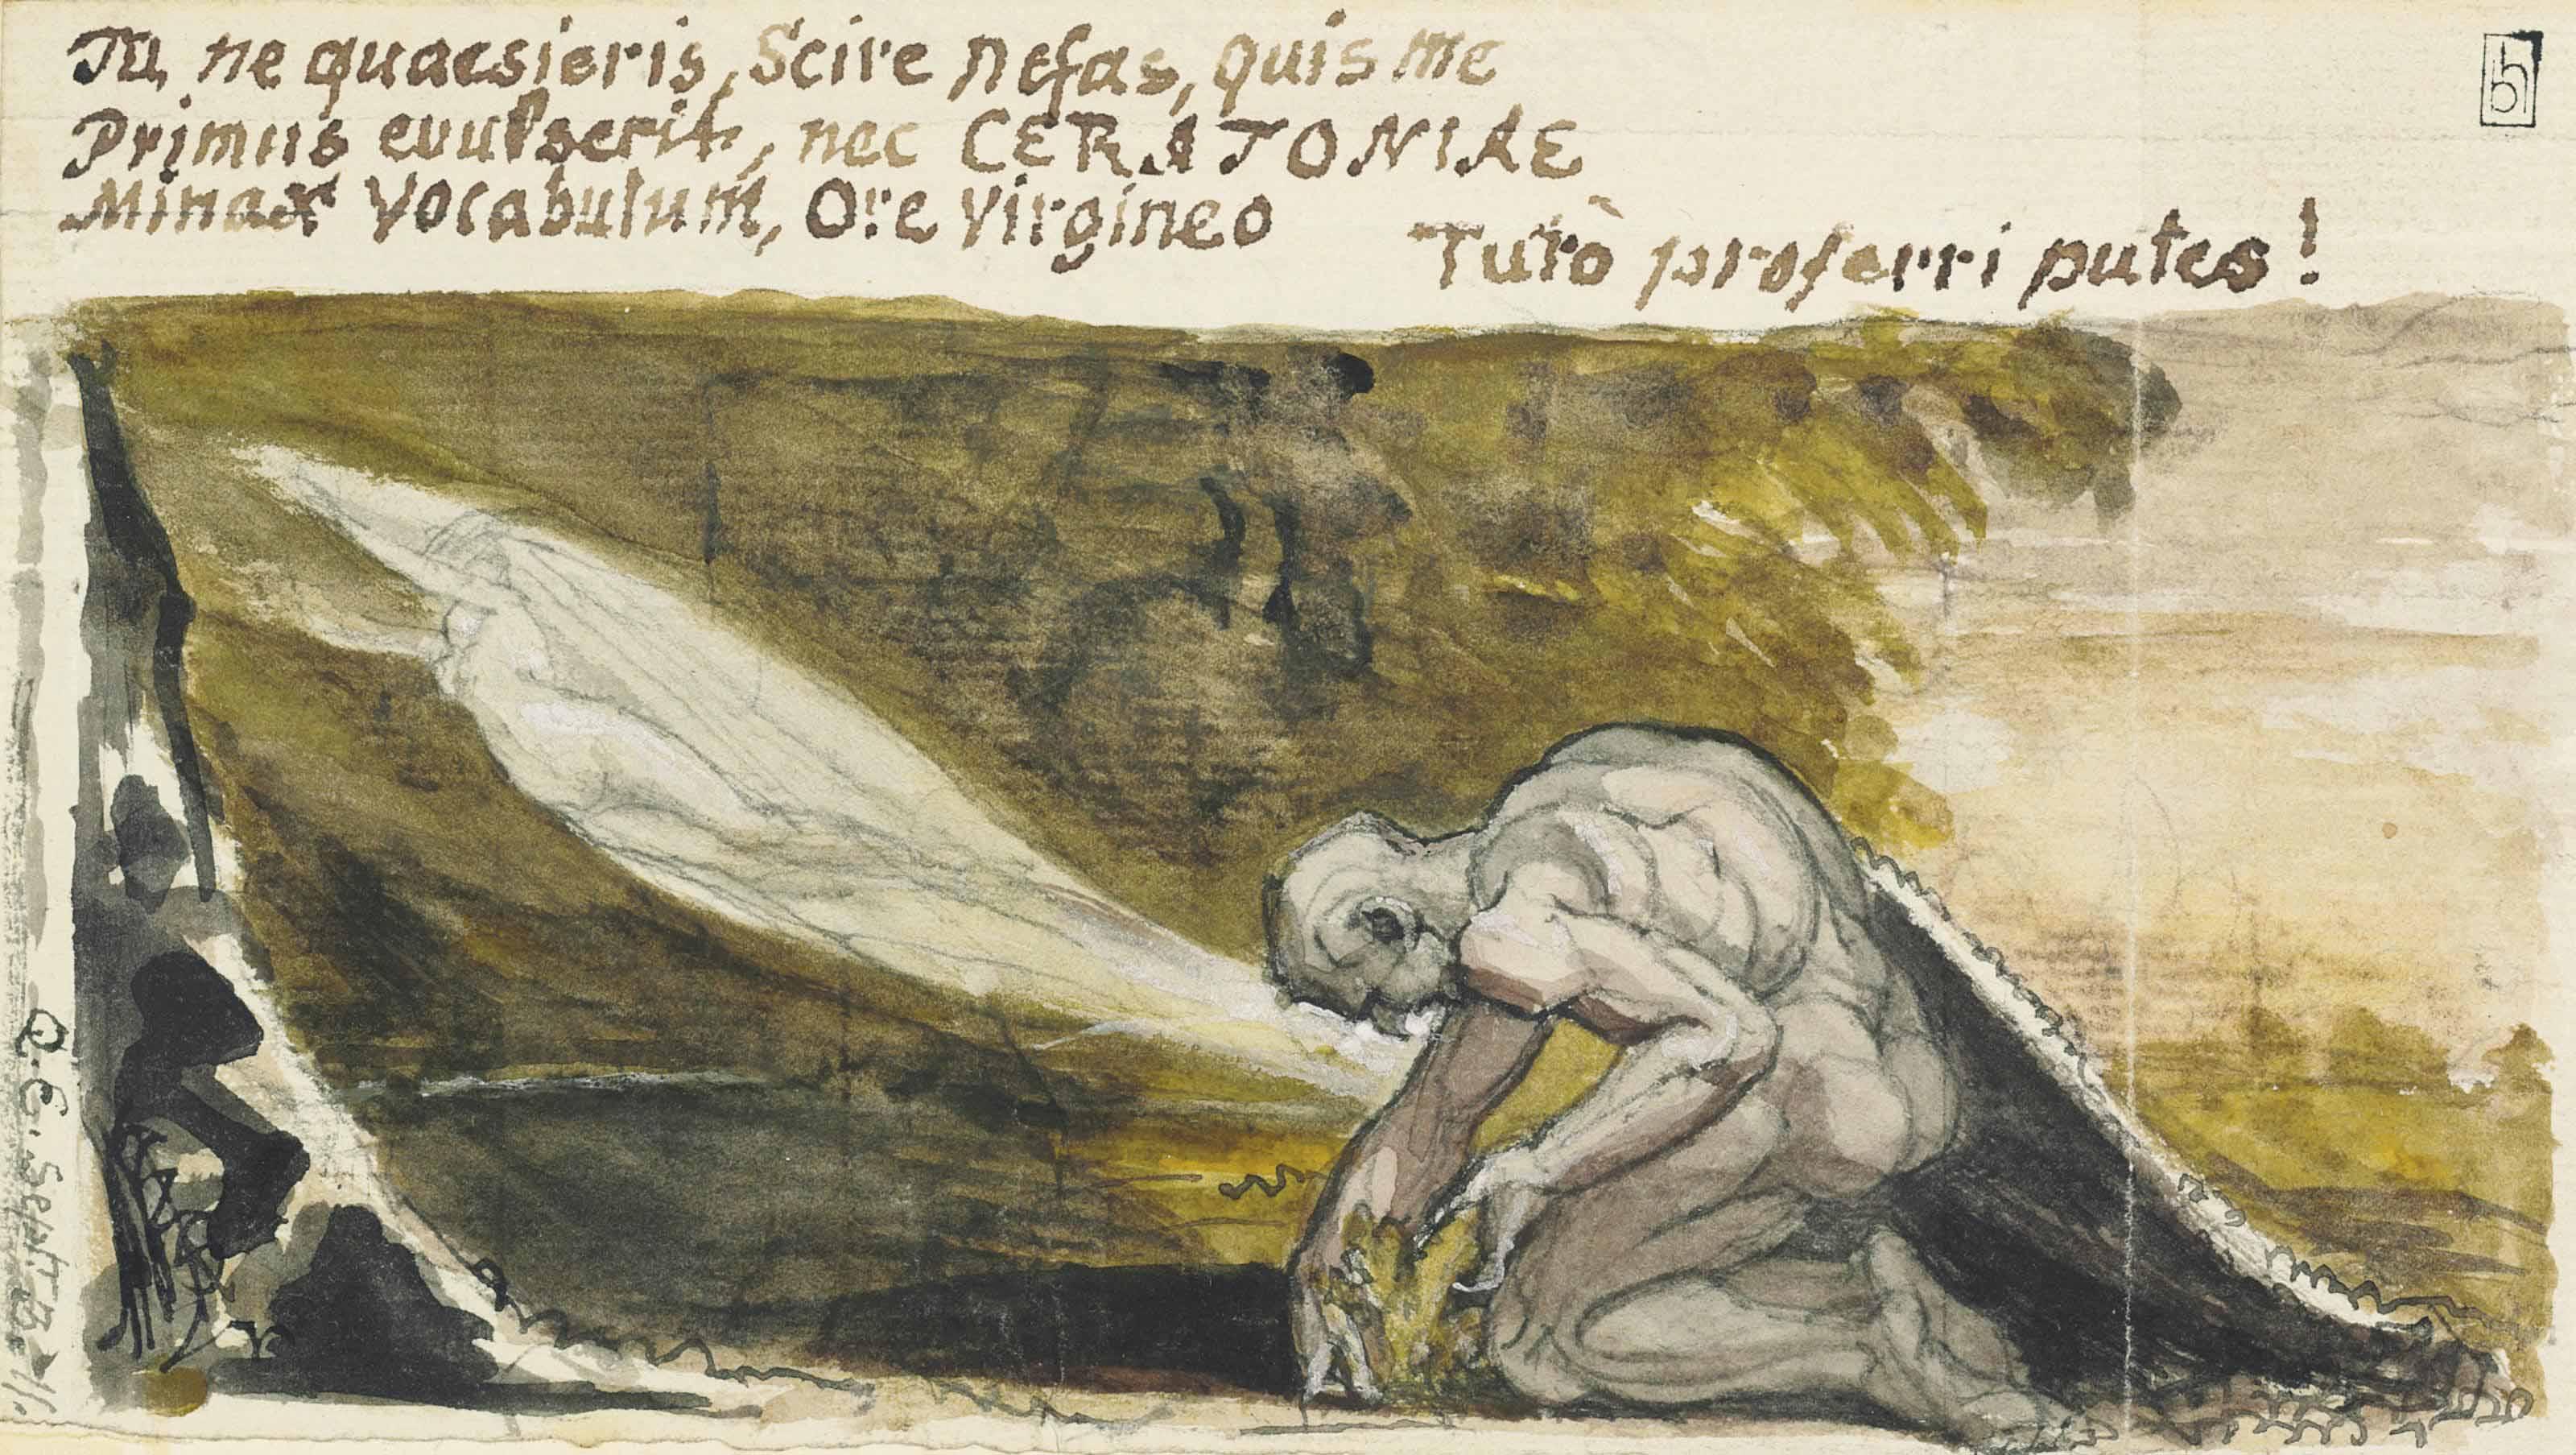 Tu ne quaesieris, Scire nefas, quis me
Primus evulserit, nec CERATONIAE
Minax Vocabulum, Ore Virgineo
Tutò proferri putes!